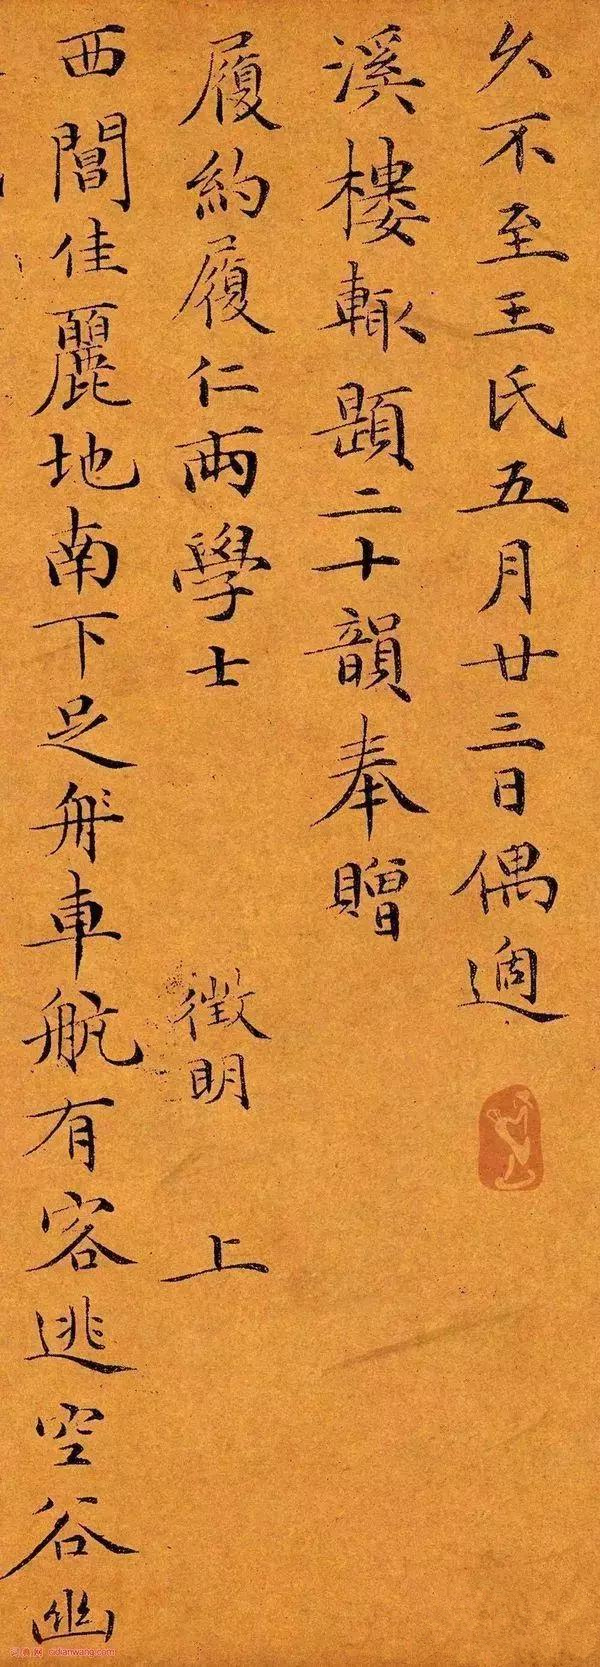 久不至王氏五月廿三日偶適
溪樓輙題二十韻奉贈
履約履仁兩學士 徵明 上
西閶佳麗地南下足舟車航有客逃空谷幽
词典网 cidianwang.com